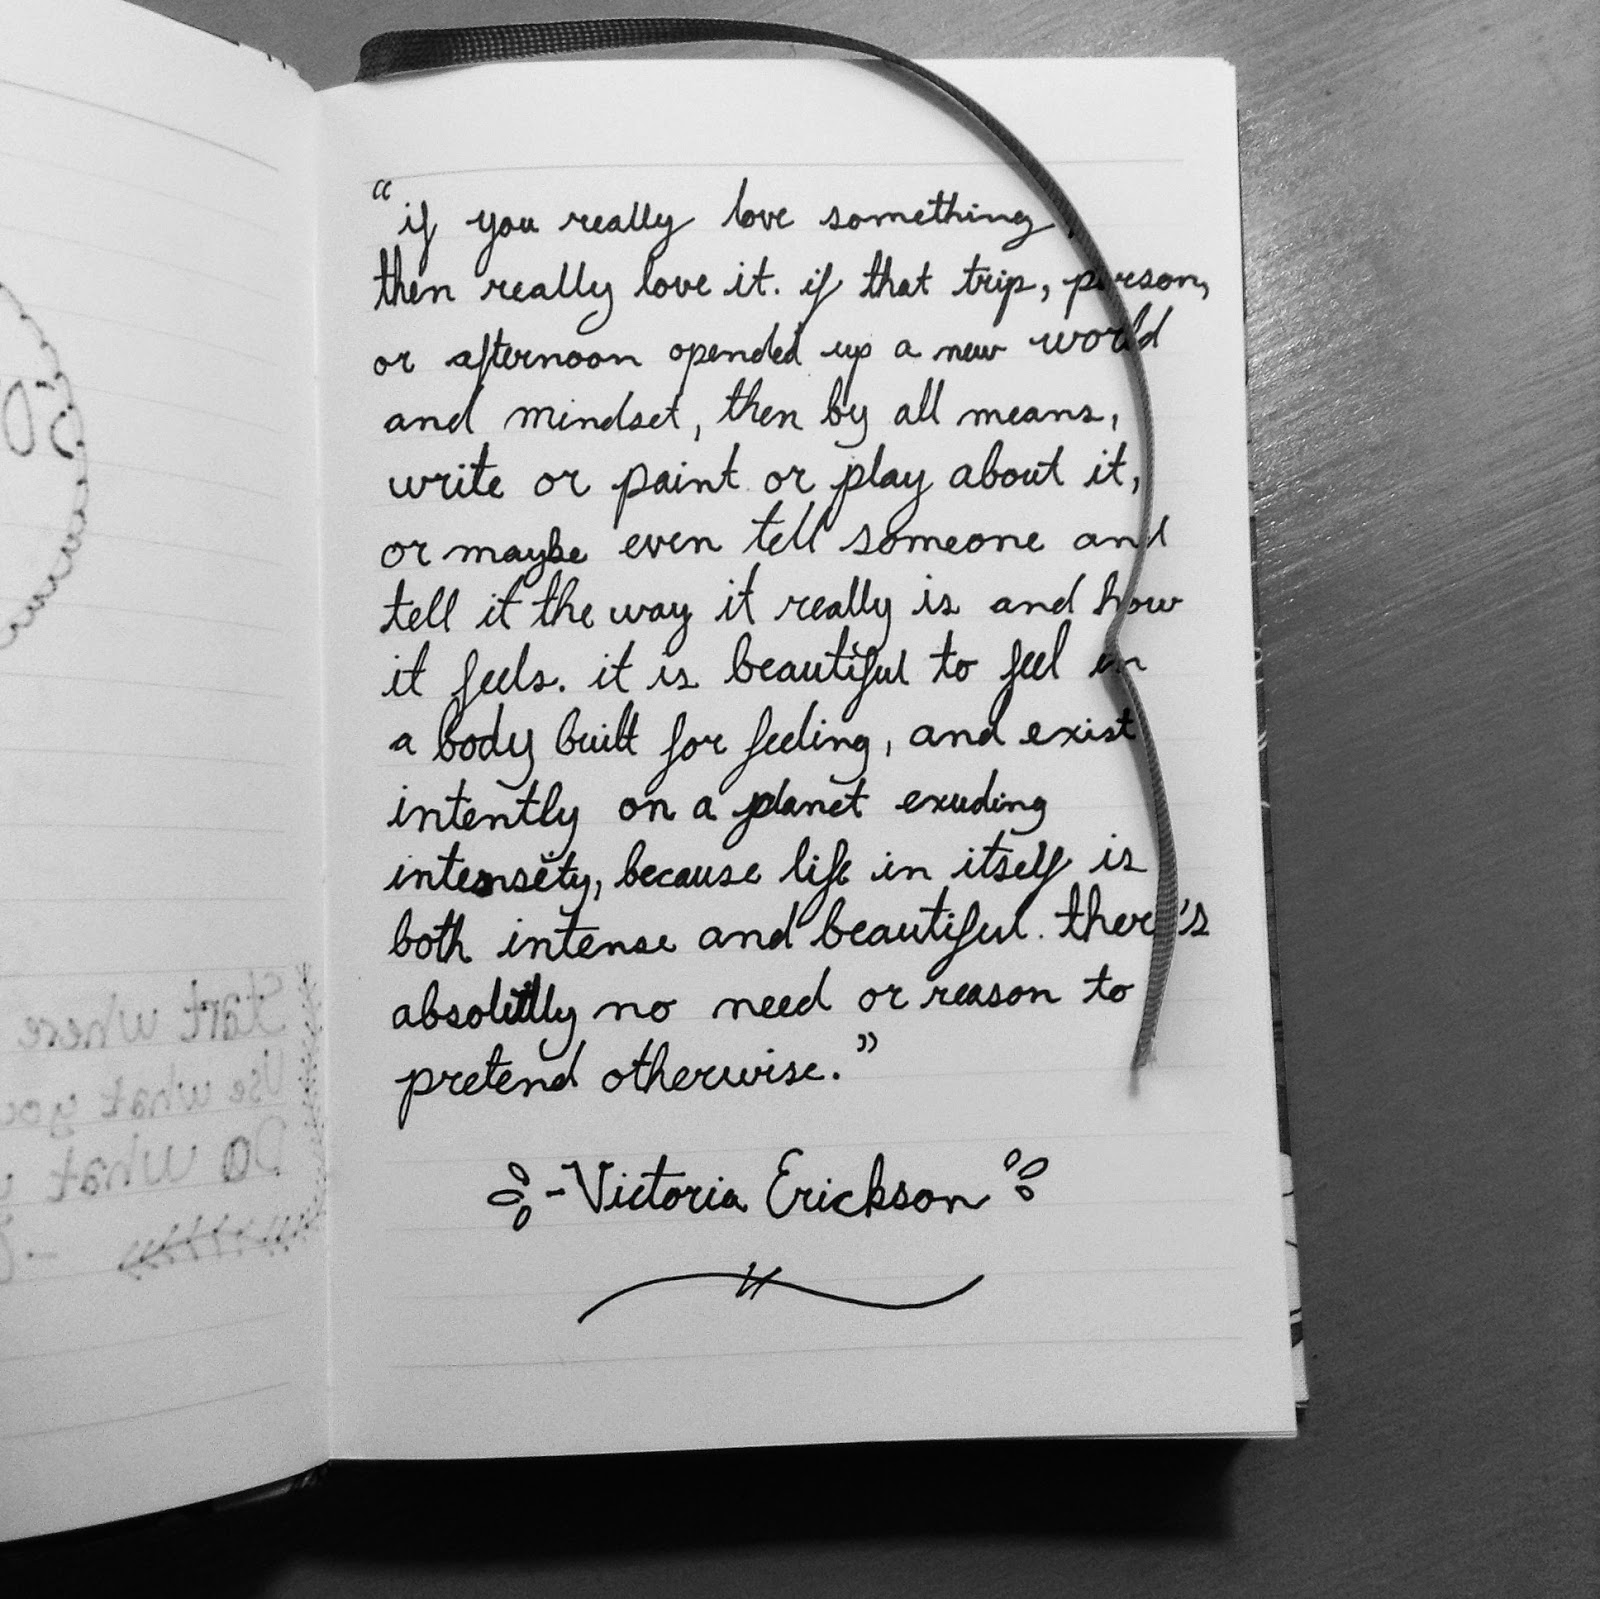 Start where
Use what you
Do what
"if you really love something,
then really love it. if that trip, person,
or afternoon opended up a new world
and mindset, then by all means,
write or paint or play about it,
or maybe even tell someone and
tell it the way it really is and how
it feels. it is beautiful to feel in
a body built for feeling, and exist
intently on a planet exuding
intensity, because life in itself is
both intense and beautiful. there's
absolutlly no need or reason to
pretend otherwise."
-Victoria Erickson